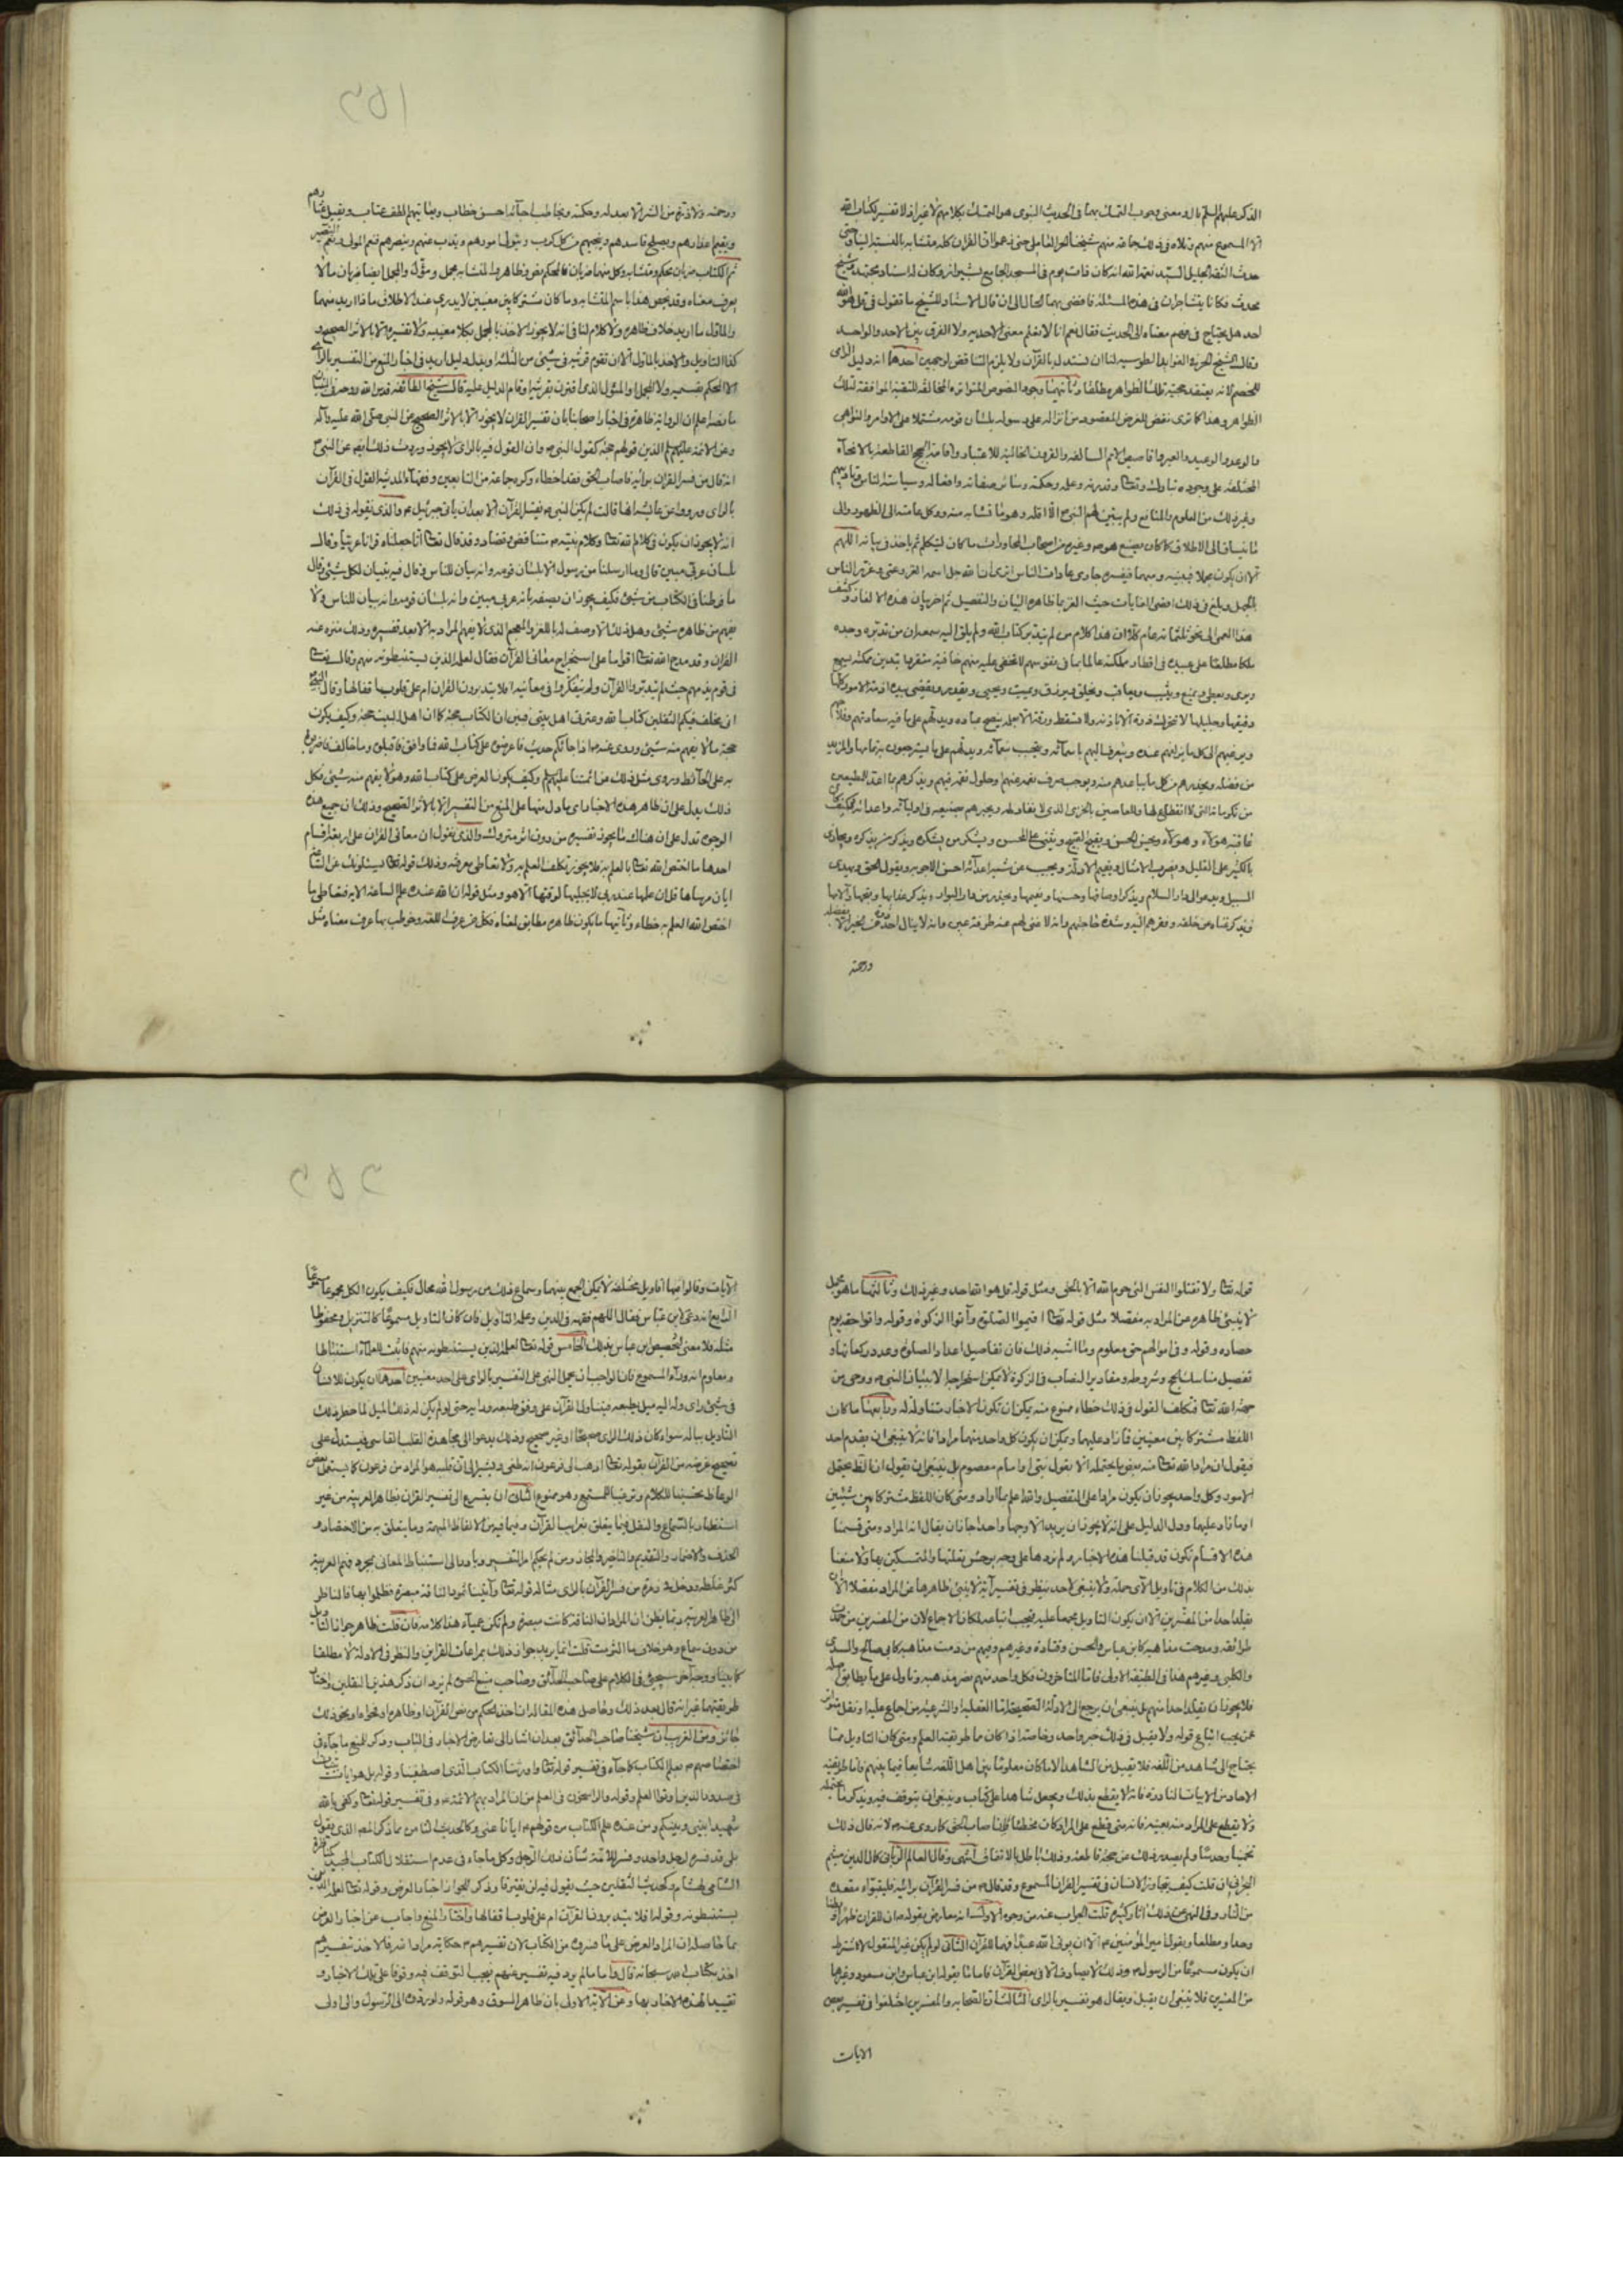 الذكر عليهم السلام بل لا معنى لوجوب التمسك بهما في الحديث النبوي هو التمسك بكلامهم لا غير اذ لا تفسير لكتاب الله
الا المسموع منهم وتلاه في ذلك جماعة منهم شيخنا
حدث الثقة الجليل السيد نعمة الله انه كان ذات يوم في المسجد الجامع بشيراز وكان الاستاد المجتهد والشيخ
المحدث فكانا يتناظران في هذه المسئلة فافضى بهما الحال الى ان قال الاستاد للشيخ ما تقول في قل هو الله
احد هل يحتاج في فهم معناه الى الحديث فقال نعم انا لا نعلم معنى الاحدية ولا الفرق بين الاحد والواحد
وقال الشيخ الحر في الفوائد الطوسية لنا ان نستدل بالقرآن ولا يلزم التناقض لوجهين احدهما انه دليل الزامي
للخصم لانه يعتقد حجية تلك الظواهر مطلقا وثانيهما وجود النصوص المتواترة المخالفة للتقية الموافقة لتلك
الظواهر وهذا كما ترى نقض للغرض المقصود من انزاله على رسوله بلسان قومه مشتملا على الاوامر والنواهي
والوعد والوعيد والعبر واقاصيص الامم السالفة والقرون الخالية للاعتبار واقامة الحجج القاطعة بالانحاء
المختلفة على وجوده تبارك وتعالى وقدرته وعلمه وحكمته وسائر صفاته وافعاله وسياسته للناس وتاديبهم
وغير ذلك من العلوم والمنافع ولم يتبين لهم النبي الا اقله وهو ما تشابه منه ووكل عامته الى الظهور والى
ما ينساق الى الاطلاق كما كان يصنع هو وغيره من اصحاب المحاورات ما كان ليتكلم ثم ياخذ في بيانه اللهم
الا ان يكون مجملا فيبينه ومبهما فيفسره جاري عادات الناس
المجمل وبلغ في ذلك اقصى الغايات حيث الغز بما ظاهره البيان والتفصيل ثم اخر بيان هذه الالغاز وكشف
هذا المعمى الى نحو ثلثمائة عام كلا ان هذا كلام من لم يتدبر كتاب الله ولم يلق اليه سمعه ان من تدبره وحده
ملكا مطلعا على عبيده في اقطار مملكته عالما بما في نفوسهم لا تخفى عليه منهم خافية متفردا بتدبير مملكته يسمع
ويرى ويعطي ويمنع ويثيب ويعاقب ويخلق ويرزق ويميت ويحيي ويقدر ويقضي بيده ازمة الامور كلها
دقيقها وجليلها لا تتحرك ذرة الا باذنه ولا تسقط ورقة الا بعلمه ينصح عباده ويدلهم على ما فيه سعادتهم وفلاحهم
ويرغبهم الى كل ما يزلفهم عنده ويتعرف اليهم باسمائه ويتحبب بنعمائه ويدلهم على ما يستوجبون به تمامها والمزيد
من فضله ويحذرهم من كل ما يباعدهم منه ويوجب صرف نعمه عنهم وحلول نقمه فيهم ويذكرهم بما اعد للمطيعين
من تكرماته التي لا انقطاع لها وللعاصين بالخزي الذي لا نفاد له ويخبرهم بصنيعه في اوليائه واعدائه فكيف
عاقبة هؤلاء وهؤلاء ويحسن الحسن ويقبح القبيح ويثني على المحسن ويشكر من يشكره ويذكر من يذكره ويجازي
بالكثير على القليل ويضرب الامثال ويقيم الادلة ويجيب عن شبه اعدائه احسن الاجوبة ويقول الحق ويهدي
السبيل ويدعو الى دار السلام ويذكر اوصافها وحسنها ونعيمها ويحذر من دار البوار ويذكر عذابها وقبحها وآلامها
ويذكر غناه عن خلقه وفقرهم اليه وشدة حاجتهم وانه لا غنى لهم عنه طرفة عين وانه لا ينال احد ذرة من الخير الا بفضله
ورحمته
ورحمته ولا ذرة من الشر الا بعدله وحكمته ويخاطب احبائه احسن خطاب ويعاتبهم الطف عتاب ويقيل عثراتهم
ويقيم اعذارهم ويصلح فاسدهم وينجيهم من كل كرب ويتولى امورهم ويذب عنهم وينصرهم فنعم المولى ونعم النصير
ثم الكتاب ضربان محكم ومتشابه وكل منهما ضربان فالمحكم نص وظاهر والمتشابه مجمل ومؤول والمجمل ايضا ضربان ما لا
يعرف معناه وقد يخص هذا باسم المتشابه وما كان مشتركا بين معنيين لا يدرى عند الاطلاق ماذا اريد منهما
والماول ما اريد خلاف ظاهره ولا كلام لنا في انه لا يجوز الاخذ بالمجمل بكلا معنييه ولا تفسيره الا بالاثر الصحيح و
كذا التاويل والاخذ بالماول الا ان تقوم قرينة في شيء من الثلثة او يدل دليل
الا المحكم بقسميه ولا المجمل والمؤول الذي اقترن بقرينة او قام الدليل عليه قال شيخ الطائفة قدس الله روحه في التبيان
ما نصه اعلم ان الرواية ظاهرة في اخبار اصحابنا بان تفسير القرآن لا يجوز الا بالاثر الصحيح عن النبي صلى الله عليه وآله
وعن الائمة عليهم السلم الذين قولهم حجة كقول النبي وان القول فيه بالراي لا يجوز وروت ذلك العامة عن النبي
انه قال من فسر القرآن برأيه فاصاب الحق فقد اخطاء وكره جماعة من التابعين وفقهاء المدينة القول في القرآن
بالراي ورووا عن عايشة انها قالت لم يكن النبي يفسر القرآن الا بعد ان ياتي جبرئيل والذي نقوله في ذلك
انه لا يجوز ان يكون في كلام الله تعالى وكلام نبيه تناقض وتضاد وقد قال تعالى انا جعلناه قرآنا عربيا وقال
بلسان عربي مبين قال وما ارسلنا من رسول الا بلسان قومه وانه بيان للناس وقال فيه تبيان لكل شيء وقال
ما فرطنا في الكتاب من شيء فكيف يجوز ان يصفه بانه عربي مبين وانه بلسان قومه وانه بيان للناس ولا
يفهم من ظاهره شيء وهل ذلك الا وصف له باللغز والمعمى الذي لا يفهم المراد به الا بعد تفسيره وذلك منزه عنه
القرآن وقد مدح الله تعالى اقواما على استخراج معاني القرآن فقال لعلمه الذين يستنبطونه منهم وقال تعالى
في قوم يذمهم حيث لم يتدبروا القرآن ولم يتفكروا في معانيه افلا يتدبرون القرآن ام على قلوب اقفالها وقال النبي
اني مخلف فيكم الثقلين كتاب الله وعترتي اهل بيتي فبين ان الكتاب حجة كما ان اهل البيت حجة وكيف يكون
حجة ما لا يفهم منه شيء وروي عنه اذا جائكم حديث فاعرضوه على كتاب الله فما وافق فاقبلوه وما خالف فاضربوا
به على الحائط وروي مثل ذلك عن ائمتنا عليهم السلم وكيف يكون العرض على كتاب الله وهو لا يفهم منه شيء فكل
ذلك يدل على ان ظاهر هذه الاخبار
الوجوه تدل على ان هناك ما يجوز تفسيره من دون اثر متروك والذي نقول ان معاني القرآن على اربعة اقسام
احدها ما اختص الله تعالى بالعلم به فلا يجوز تكلف العلم به ولا تعاطي معرفته وذلك قوله تعالى يسئلونك عن الساعة
ايان مرساها قل ان علمها عند ربي لا يجليها لوقتها الا هو ومثل قوله ان الله عنده علم الساعة الآية فتعاطي ما
اختص الله العلم به خطاء وثانيها ما يكون ظاهره مطابق لمعناه فكل من عرف اللغة وخوطب بها عرف معناه مثل
قوله تعالى ولا تقتلوا النفس التي حرم الله الا بالحق ومثل قوله قل هو الله احد وغير ذلك وثالثها ما هو مجمل
لا ينبئ ظاهره عن المراد به مفصلا مثل قوله تعالى اقيموا الصلوة وآتوا الزكوة وقوله وآتوا حقه يوم
حصاده وقوله وفي اموالهم حق معلوم وما اشبه ذلك فان تفاصيل اعداد الصلوة وعدد ركعاتها و
تفصيل مناسك الحج وشروطه ومقادير النصاب في الزكوة لا يمكن استخراجها الا ببيان النبي ووحي من
جهة الله تعالى فتكلف القول في ذلك خطاء ممنوع منه يمكن ان تكون الاخبار متناولة له ورابعها ما كان
اللفظ مشتركا بين معنيين فما زاد عليهما ويمكن ان يكون كل واحد منهما مرادا فانه لا ينبغي ان يقدم احد
فيقول ان مراد الله تعالى منه بعض ما يحتمله الا بقول نبي او امام معصوم بل ينبغي ان يقول ان الظاهر يحتمل
الامور وكل واحد يجوز ان يكون مرادا على التفصيل والله اعلم بما اراد ومتى كان اللفظ مشتركا بين شيئين
او ما زاد عليهما ودل الدليل على انه لا يجوز ان يريد الا وجها واحدا جاز ان يقال انه المراد ومتى قسمنا
هذه الاقسام نكون قد قبلنا هذه الاخبار ولم نردها على وجه يوحش نقلتها والمتمسكين بها ولا منعنا
بذلك من الكلام في تاويل الآي جملة ولا ينبغي لاحد ينظر في تفسير آية لا ينبئ ظاهرها عن المراد مفصلا الا ان
يقلد احدا من المفسرين الا ان يكون التاويل مجمعا عليه فيجب اتباعه لمكان الاجماع لان من المفسرين من حمدت
طرائقه ومدحت مذاهبه كابن عباس والحسن وقتادة وغيرهم وفيهم من ذمت مذاهبه كابي صالح والسدي
والكلبي وغيرهم هذا في الطبقة الاولى فاما المتاخرون فكل واحد منهم نصر مذهبه وتاول على ما يطابق اصله
فلا يجوز ان يقلد احدا منهم بل ينبغي ان يرجع الى الادلة الصحيحة اما العقلية او الشرعية من اجماع عليه او نقل متواتر
عمن يجب اتباع قوله ولا يقبل في ذلك خبر واحد وخاصة اذا كان مما طريقه العلم ومتى كان التاويل مما
يحتاج الى شاهد من اللغة فلا يقبل من الشاهد الا ما كان معلوما بين اهل اللغة شايعا فيما بينهم فاما طريقة
الاحاد من الابيات النادرة فانه لا يقطع بذلك ويجعل شاهدا على كتاب الله وينبغي ان يتوقف فيه ويذكر ما يحتمله
ولا يقطع على المراد منه بعينه فانه متى قطع على المراد كان مخطئا وان اصاب الحق كما روي عنه لانه قال ذلك
تخمينا وحدسا ولم يصدر ذلك عن حجة قاطعة وذلك باطل بالاتفاق انتهى وقال العالم الرباني كمال الدين ميثم
البحراني ان قلت كيف يتجاوز الانسان في تفسير القرآن المسموع وقد قال من فسر القرآن برأيه فليتبوء مقعده
من النار وفي النهي عن ذلك آثار كثيرة قلت الجواب عنه من وجوه الاول انه معارض بقوله ان للقرآن ظهرا وبطنا
وحدا ومطلعا وبقول امير المؤمنين الا ان يؤتي الله عبدا فهما للقرآن الثاني لو لم يكن غير المنقول لاشترط
ان يكون مسموعا من الرسول وذلك لا يصادف الا في بعض القرآن فاما ما يقوله ابن عباس وابن مسعود وغيرهما
من المفسرين فلا ينبغي ان يقبل ويقال هو تفسير بالراي الثالث ان الصحابة والمفسرين اختلفوا في تفسير بعض
الايات
الآيات وقالوا فيها اقاويل مختلفة لا يمكن الجمع بينها وسماع ذلك من رسول الله محال فكيف يكون الكل مسموعا
الرابع انه دعى لابن عباس فقال اللهم فقهه في الدين وعلمه التاويل فان كان التاويل مسموعا كالتنزيل ومحفوظا
مثله فلا معنى لتخصيص ابن عباس بذلك الخامس قوله تعالى لعلمه الذين يستنبطونه منهم فاثبت للعلماء استنباطا
ومعلوم انه وراء المسموع فاذا الواجب ان يحمل النهي عن التفسير بالراي على احد معنيين احدهما ان يكون للانسان
في شيء رأي وله اليه ميل بطبعه فيتاول القرآن على وفق طبعه ورأيه حتى لو لم يكن له ذلك الميل لما خطر ذلك
التاويل بباله سواء كان ذلك الراي صحيحا او غير صحيح وذلك كمن يدعو الى مجاهدة القلب القاسي فيستدل على
تصحيح غرضه من القرآن بقوله تعالى اذهب الى فرعون انه طغى ويشير الى ان قلبه هو المراد من فرعون كما يستعمله بعض
الوعاظ تحسينا للكلام وترغيبا للمستمع وهو ممنوع الثاني ان يتسرع الى تفسير القرآن بظاهر العربية من غير
استظهار بالسماع والنقل فيما يتعلق بغرايب القرآن وما فيها من الالفاظ المبهمة وما يتعلق به من الاختصار و
الحذف والاضمار والتقديم والتاخير والمجاز ومن لم يحكم ظاهر التفسير وبادر الى استنباط المعاني بمجرد فهم العربية
كثر غلطه ودخل في زمرة من فسر القرآن بالراي مثاله قوله تعالى وآتينا ثمود الناقة مبصرة فظلموا بها فالناظر
الى ظاهر العربية ربما يظن ان المراد ان الناقة كانت مبصرة ولم تكن عمياء هذا كلامه فان قلت ظاهره جواز التاويل
من دون سماع وهو خلاف ما التزمت قلت انما يريد جواز ذلك بمراعات القراين والنظر في الادلة لا مطلقا
كما بينا ووجه آخر سيجيء في الكلام على صاحب الحدائق وصاحب منبع
طريقتهما غير انه قال بعد ذلك وحاصل هذه المقالة ان اخذ الحكم من نص القرآن او ظاهره او فحواه ونحو ذلك
جائز ومن الغريب ان شيخنا صاحب الحدائق بعد ان اشار الى تعارض الاخبار في الباب وذكر للمنع ما جاء في
اختصاصهم بعلم الكتاب كما جاء في تفسير قوله تعالى واورثنا الكتاب الذي اصطفينا وقوله بل هو ايات بينات
في صدور الذين اوتوا العلم وقوله والراسخون في العلم من ان المراد بهم الائمة وفي تفسير قوله تعالى وكفى بالله
شهيدا بيني وبينكم ومن عنده علم الكتاب من قولهم ايانا عنى وكالحديث
بلى قد فسره لرجل واحد وفسر للامة شان ذلك الرجل وكل ما جاء في عدم استقلال الكتاب
الشامي لهشام وكحديث الثقلين حيث يقول فيه لن يفترقا وذكر للجواز اخبار العرض وقوله تعالى لعلمه الذين
يستنبطونه وقوله افلا يتدبرون القرآن ام على قلوب اقفالها واختار المنع واجاب عن اخبار العرض
بما حاصله ان المراد العرض على ما فسروه من الكتاب لان تفسيرهم حكاية مراد الله فالاخذ بتفسيرهم
اخذ بكتاب الله سبحانه قال واما ما لم يرد فيه تفسير عنهم فيجب التوقف فيه وقوفا على تلك الاخبار و
تقييدا لهذه الاخبار بها وعن الآية الاولى بان ظاهر السوق وهو قوله ولو ردوه الى الرسول والى اولي